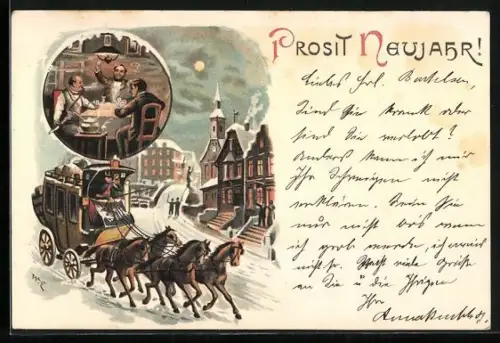 PROSIT NEUJAHR!
Liebes Frl. Bartelsen,
Sind Sie krank oder
sind Sie verlobt?
Anders kann ich mir
Ihr Schweigen nicht
erklären. Seien Sie
nur nicht bös wenn
ich grob werde, ich
nicht so. viele Grüße
an Sie u die Ihrigen
Ihre